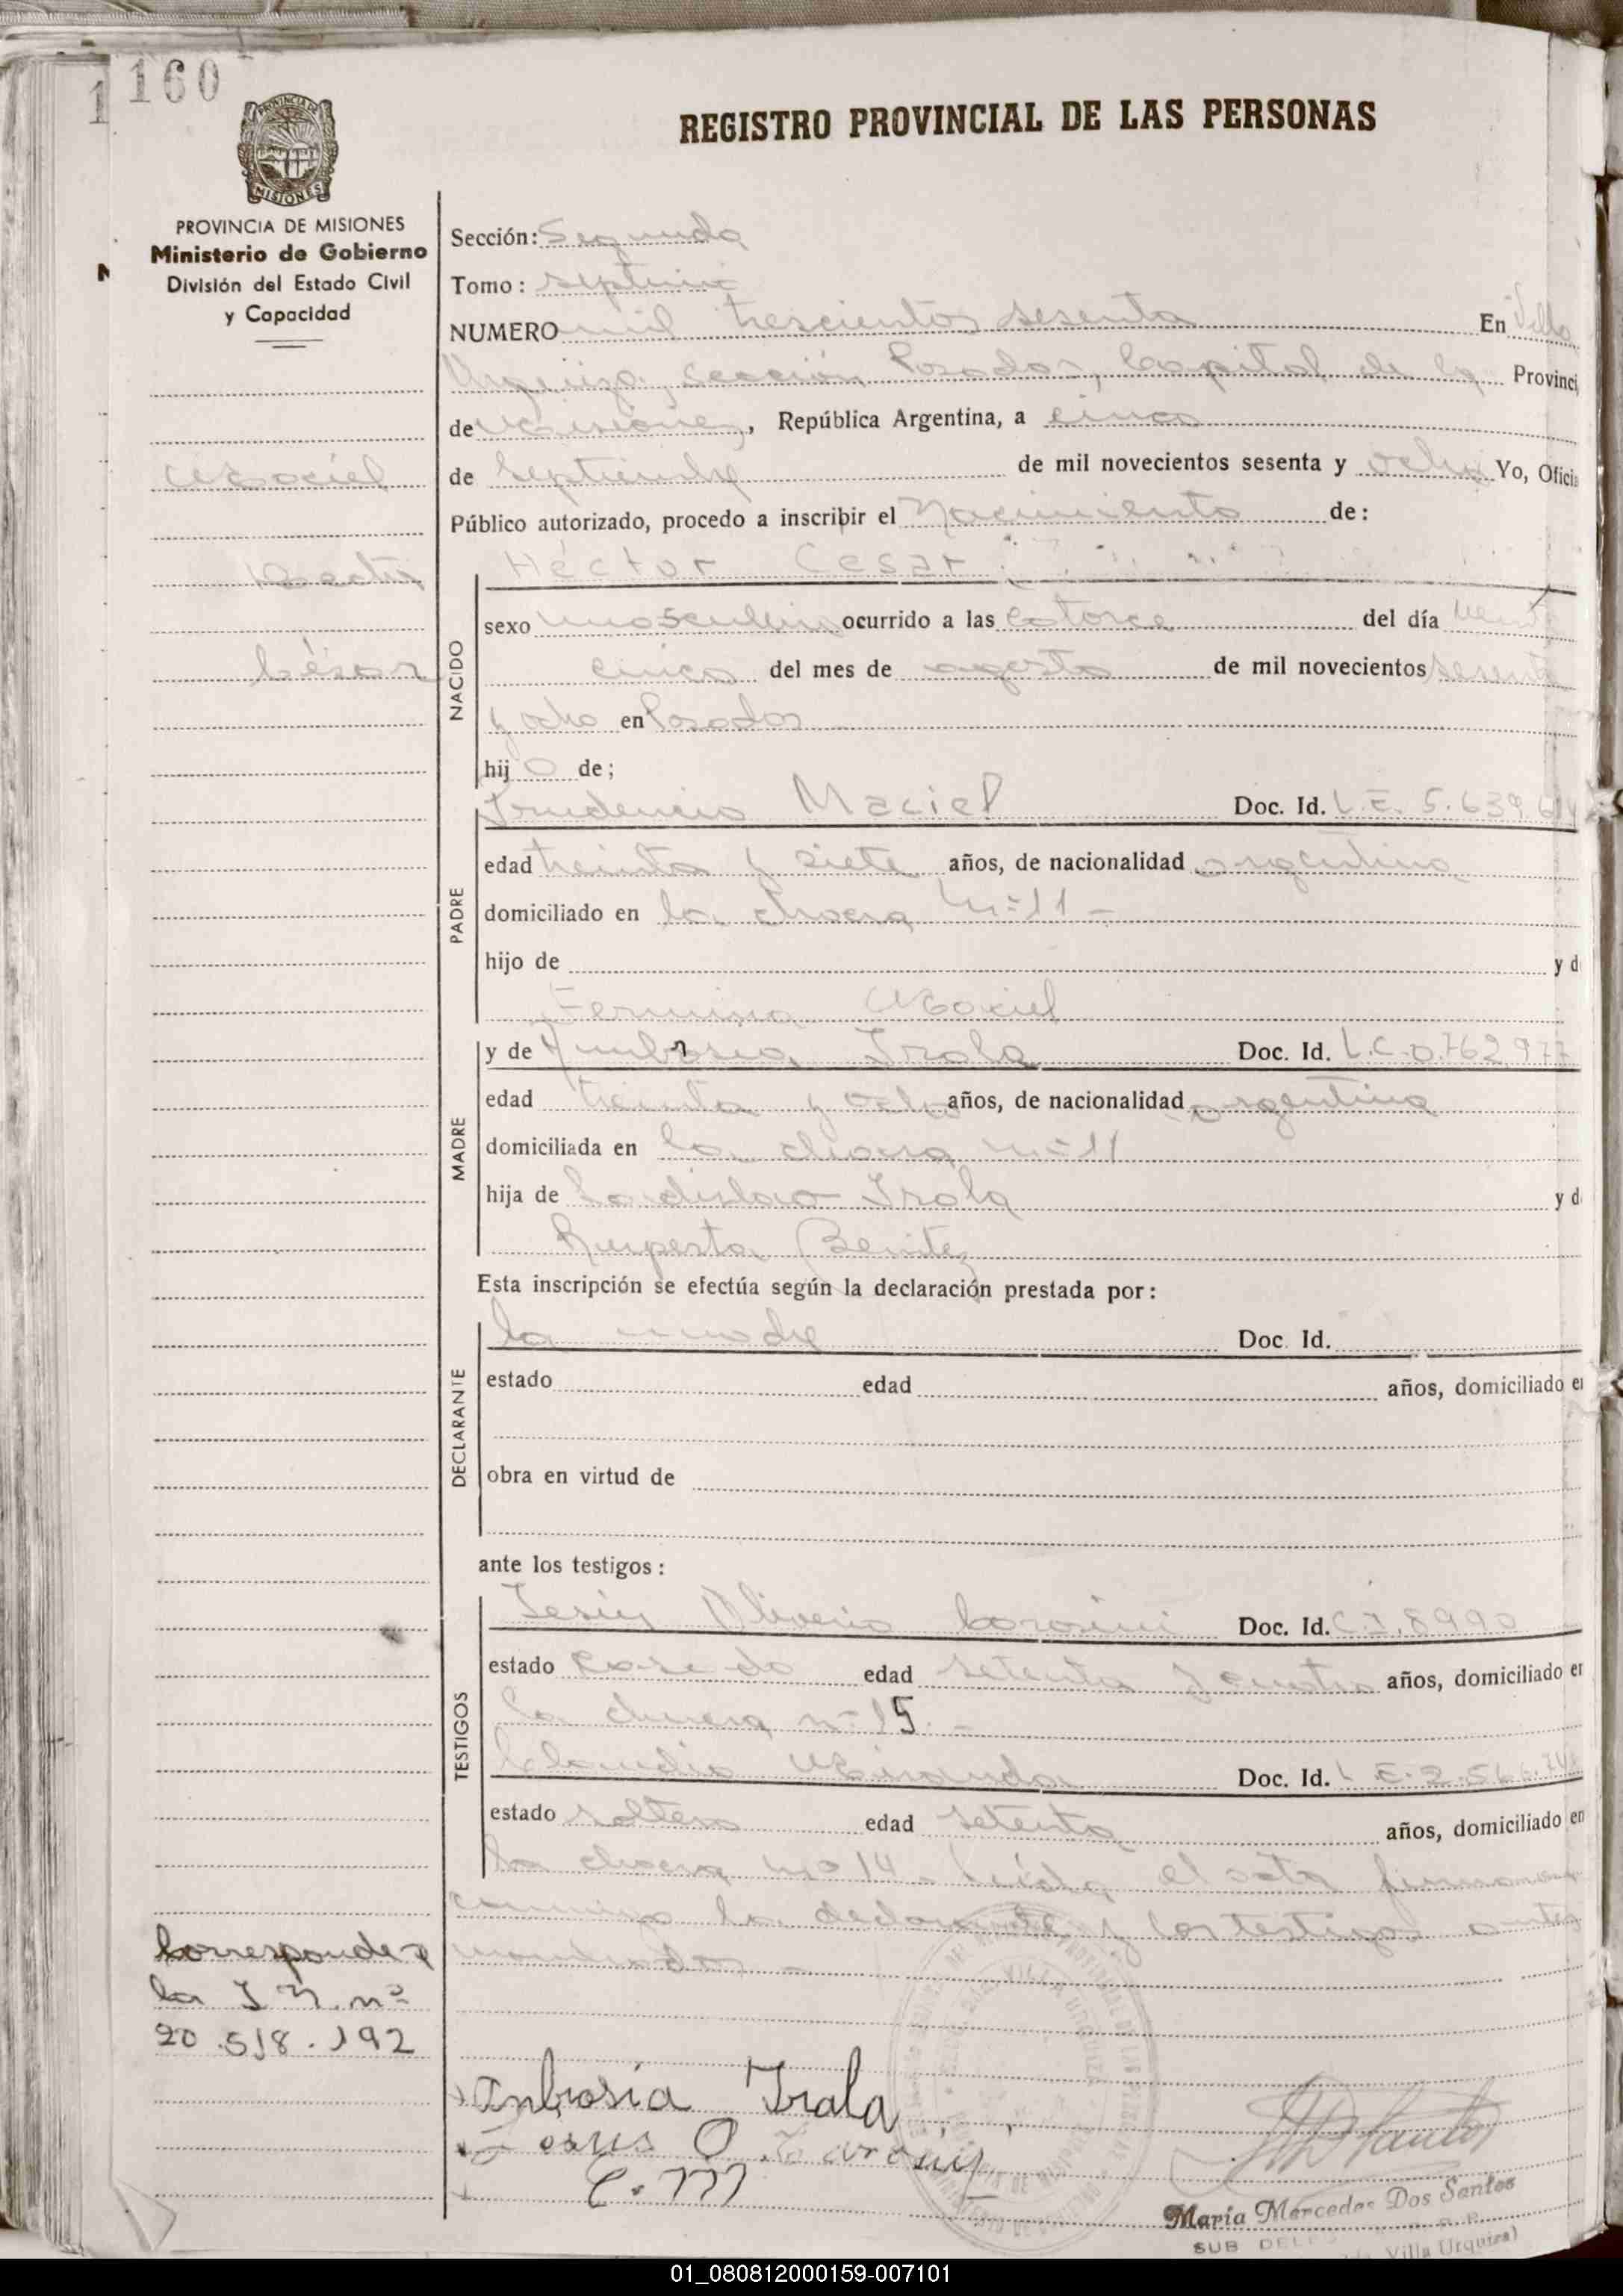 1160
REGISTRO PROVINCIAL DE LAS PERSONAS
PROVINCIA DE MISIONES
Ministerio de Gobierno
División del Estado Civil
y Capacidad
Maciel
Hector
César
Corresponde a
la I N. nº
20.518.192
Sección: Segunda
Tomo: septimo
NUMERO mil trescientos sesenta En Villa
Urquiza, sección Posadas, Capital de la Provinci
de Misiones, República Argentina, a cinco
de Septiembre de mil novecientos sesenta y ocho Yo, Oficia
Público autorizado, procedo a inscribir el Nacimiento de:
NACIDO
Héctor Cesar
sexo masculino ocurrido a las catorce del día veinte
cinco del mes de agosto de mil novecientos sesenta
y ocho en Posadas
hijo de;
PADRE
Prudencio Maciel Doc. Id. L.E. 5.639.6
edad treinta y siete años, de nacionalidad argentino
domiciliado en la chacra nº 11 -
hijo de y d
Fermina Maciel
MADRE
y de Ambrosia Irala Doc. Id. L.C. 0.762.977
edad treinta y ocho años, de nacionalidad argentina
domiciliada en la chacra nº 11
hija de Ladislao Irala y d
Ruperta Benitez
Esta inscripción se efectúa según la declaración prestada por:
DECLARANTE
la madre Doc. Id.
estado edad años, domiciliado en
obra en virtud de
ante los testigos:
TESTIGOS
Jesús Oliverio Doc. Id. C.I. 8990
estado casado edad setenta y cuatro años, domiciliado en
la chacra nº 15. -
Claudio Miranda Doc. Id. L.E. 2.566.
estado soltero edad setenta años, domiciliado en
la chacra nº 14. Leída el acta firman
conmigo la declarante y los testigos antes
mencionados -
Ambrosia Irala
Jesus O.
C. M
María Mercedes Dos Santos
SUB DELE
Villa Urquiza)
01_080812000159-007101